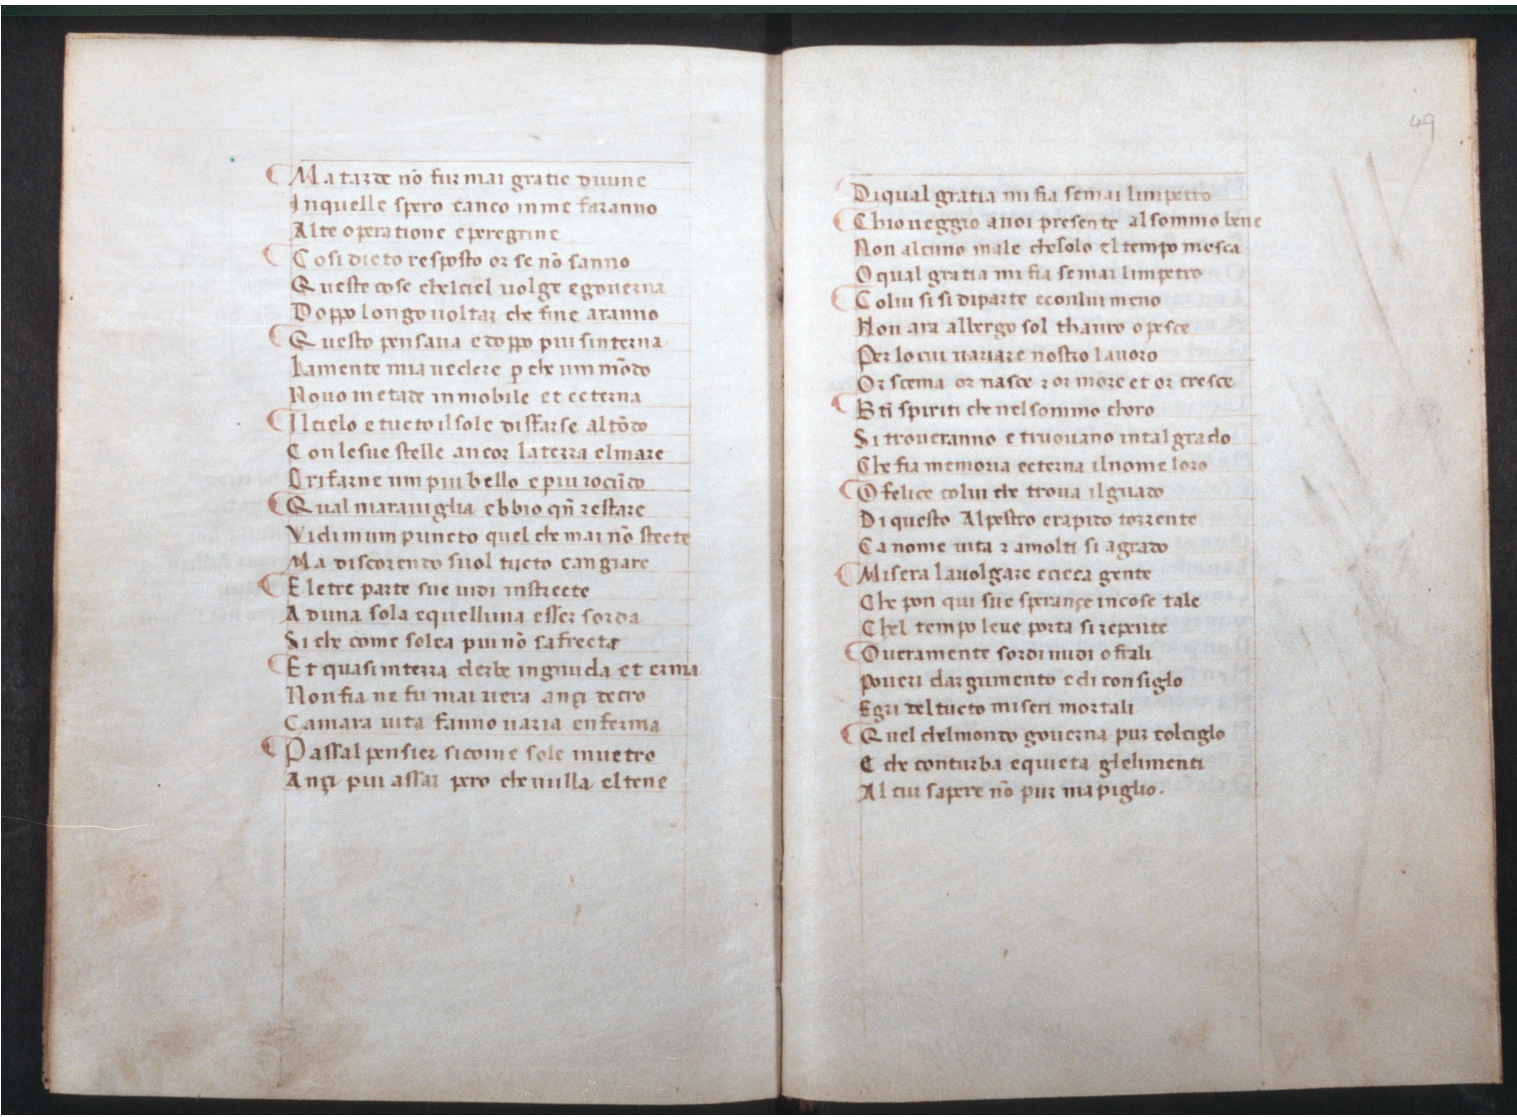 Ma tarde nõ fur mai gratie diuine
Inquelle spero canco inme faranno
Alte operatione e peregrine
Cosi dicto resposto or se nõ sanno
Queste cose chelciel uolge egouerna
Doppo longo uoltar che fine aranno
Questo pensaua e doppo piu sinterna
Lamente mia uedere p che um mõdo
Nouo inetade inmobile et ecterna
Il cielo e tucto il sole disfarse al tõdo
Con lesue stelle ancor laterra elmare
Erifarne um piu bello e piu iocũdo
Qual marauiglia ebbio qñ restare
Vidi inum puncto quel che mai nõ stecte
Ma discorendo suol tucto cangiare
E letre parte sue uidi instrecte
Aduna sola equelluna esser sorda
Si che come solea piu nõ safrecte
Et quasi interra derbe ingnuda et erma
Non fia ne fu mai uera ançi decro
Camara uita fanno uaria enferma
Passal pensier si come sole inuetro
Ançi piu assai pero che nulla eltene
49
Diqual gratia mi fia semai limpetro
Chio ueggio anoi presente al sommo bene
Non alcuno male che solo el tempo mesca
O qual gratia mi fia semai limpetro
Colui si si diparte e conlui meno
Non ara albergo sol thauro o pesce
Per lo cui uariare nostro lauoro
Or scema or nasce ⁊ or more et or cresce
Bti spiriti che nel sommo choro
Si troueranno e truouano in tal grado
Che fia memoria ecterna il nome loro
O felice colui che troua il guado
Di questo Alpestro e rapito torrente
Ca nome uita ⁊ amolti si agrado
Misera lauolgare ecieca gente
Che pon qui sue sperançe in cose tale
Chel tempo leue porta si repente
O ueramente sordi nudi o frali
Poueri dargumento e di consiglo
Egri del tucto miseri mortali
Quel chelmondo gouerna pur colciglo
E che conturba e quieta glelimenti
Al cui sapere nõ pur ma piglio.